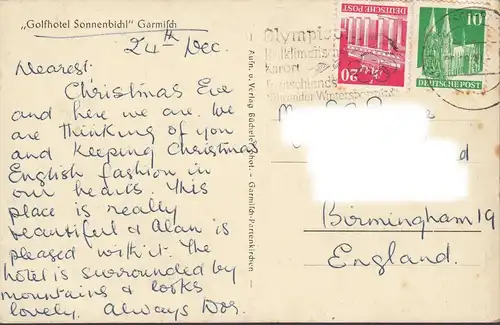 „Golfhotel Sonnenbichl" Garmisch
24th Dec.
Nearest:
Christmas Eve
and here we are. We
are thinking of you
and keeping Christmas
English fashion in
our hearts. This
place is really
beautiful & Alan is
pleased with it. The
hotel is surrounded by
mountains & looks
lovely. Always Dos.
Aufn. u. Verlag
Garmisch-Partenkirchen
Olympia
kurort
Deutschlands
führender Wintersportplatz
DEUTSCHE POST
20
10
DEUTSCHE POST
Birmingham 19
England.